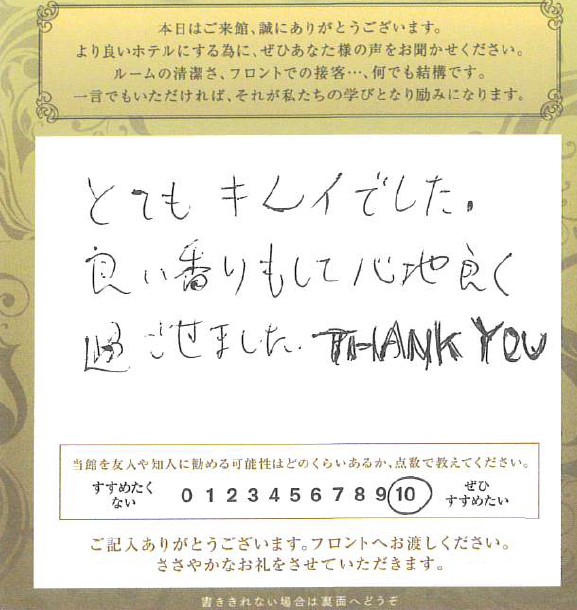 本日はご来館、誠にありがとうございます。
より良いホテルにする為に、ぜひあなた様の声をお聞かせください。
ルームの清潔さ、フロントでの接客…、何でも結構です。
一言でもいただければ、それが私たちの学びとなり励みになります。
とてもキレイでした。
良い香りもして心地良く
過ごせました. THANK YOU
当館を友人や知人に勧める可能性はどのくらいあるか、点数で教えてください。
すすめたくない 0 1 2 3 4 5 6 7 8 9 10 ぜひすすめたい
ご記入ありがとうございます。フロントへお渡しください。
ささやかなお礼をさせていただきます。
書ききれない場合は裏面へどうぞ